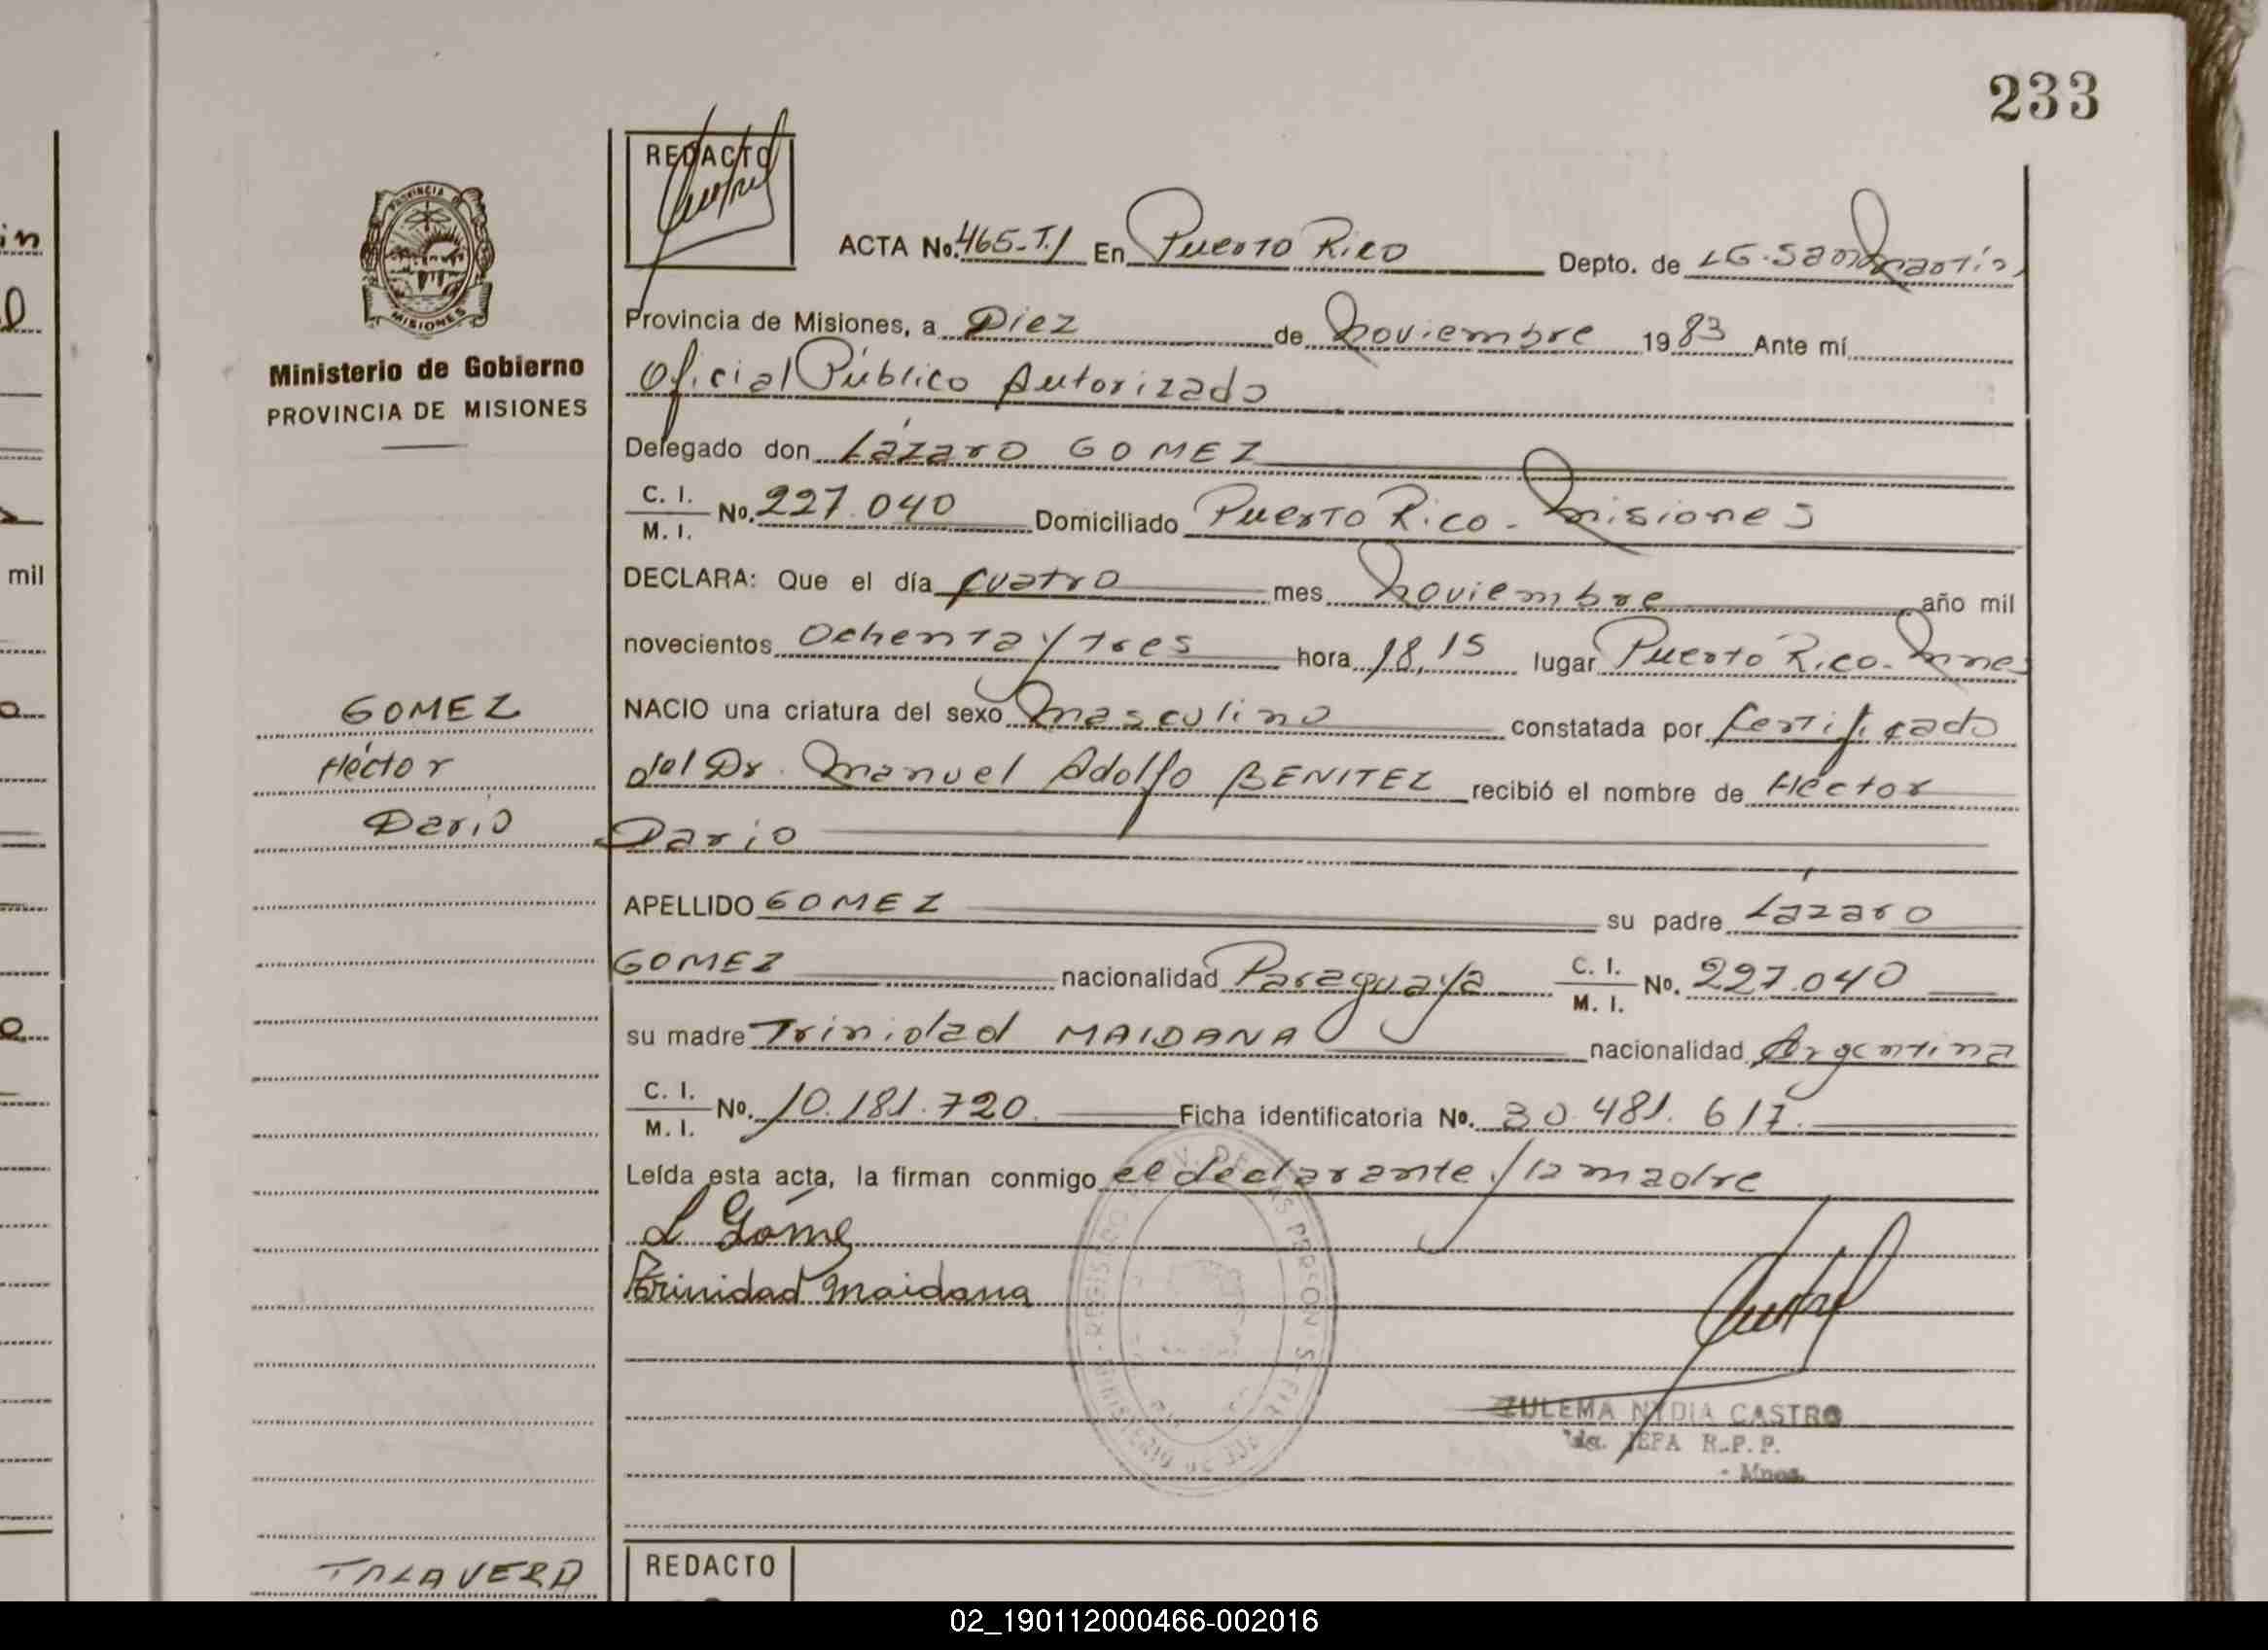 233
REDACTO
ACTA No. 465-T.I En Puerto Rico Depto. de LG. San Martin
Provincia de Misiones, a Diez de Noviembre 1983 Ante mí
Oficial Público Autorizado
Delegado don Lázaro GOMEZ
C. I.
M. I. No. 227.040 Domiciliado Puerto Rico - Misiones
DECLARA: Que el día cuatro mes Noviembre año mil
novecientos Ochenta y tres hora 18,15 lugar Puerto Rico - Mnes
NACIO una criatura del sexo Masculino constatada por Certificado
del Dr. Manuel Adolfo BENITEZ recibió el nombre de Héctor
Dario
APELLIDO GOMEZ su padre Lázaro
GOMEZ nacionalidad Paraguaya C. I. M. I. No. 227.040
su madre Trinidad MAIDANA nacionalidad Argentina
C. I.
M. I. No. 10.181.720. Ficha identificatoria No. 30.481.617.
Leída esta acta, la firman conmigo el declarante y la madre
L Góme
Trinidad Maidana
ZULEMA NYDIA CASTRO
JEFA R.P.P.
- Mnes.
REDACTO
PROVINCIA
MISIONES
Ministerio de Gobierno
PROVINCIA DE MISIONES
GOMEZ
Héctor
Dario
TALAVERA
mil
02_190112000466-002016